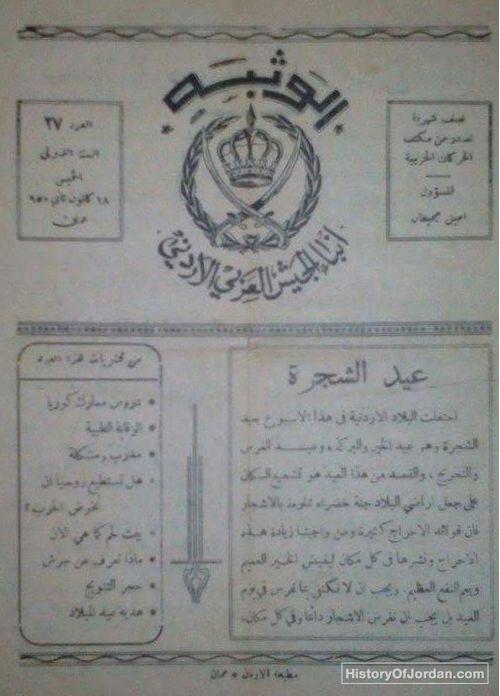 الوثبة
نصف شهرية
تصدر عن مكتب
الحركات الحربية
المسؤول
اميل جميعان
العدد ٢٧
السنة الاولى
الخميس
١٨ كانون ثاني ٩٥٠
عمان
انباء الجيش العربي الاردني
عيد الشجرة
احتفلت البلاد الاردنية في هذا الاسبوع بعيد
الشجرة وهو عيد الخير والبركة، وعيد الغرس
والتحريج، والقصد من هذا العيد هو تشجيع السكان
على جعل اراضي البلاد جنة خضراء مملوءة بالاشجار
فان فوائد الاحراج كثيرة ومن واجبنا زيادة هذه
الاحراج ونشرها في كل مكان ليفيض الخير العميم
ويعم النفع العظيم. ويجب ان لا نكتفي بما نغرس في يوم
العيد بل يجب ان نغرس الاشجار دائما وفي كل مكان.
من محتويات هذا العدد
دروس معارك كوريا
الوقاية الطبية
مدرب ومشكلة
هل تستطيع روسيا ان
تخوض الحرب؟
بيت لحم كما هي الان
ماذا تعرف عن جرش
حجر التتويج
هدية عيد الميلاد
مطبعة الاردن * عمان
HistoryOfJordan.com